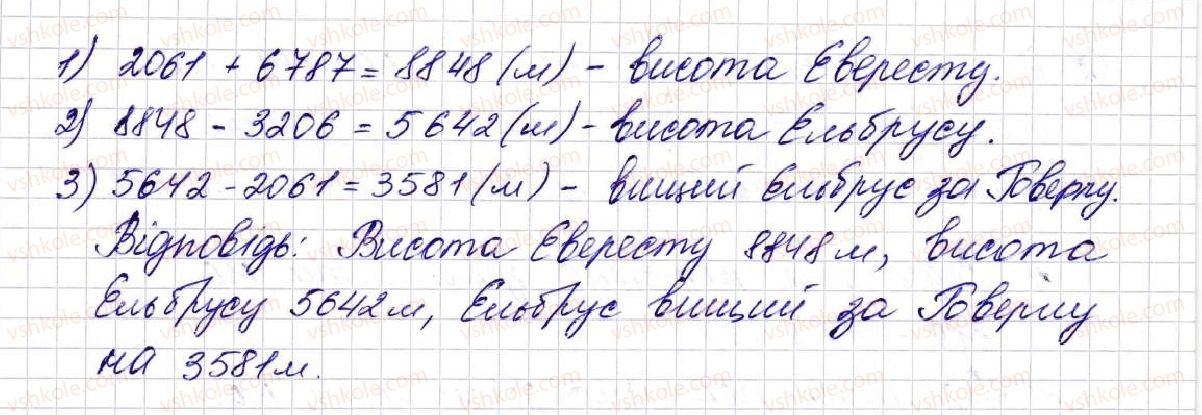 1) 2061 + 6787 = 8848 (м) - висота Евересту.
2) 8848 - 3206 = 5642 (м) - висота Ельбрусу.
3) 5642 - 2061 = 3581 (м) - вищий Ельбрус за Говерлу.
Відповідь: Висота Евересту 8848 м, висота
Ельбрусу 5642 м, Ельбрус вищий за Говерлу
на 3581 м.
vshkole.com